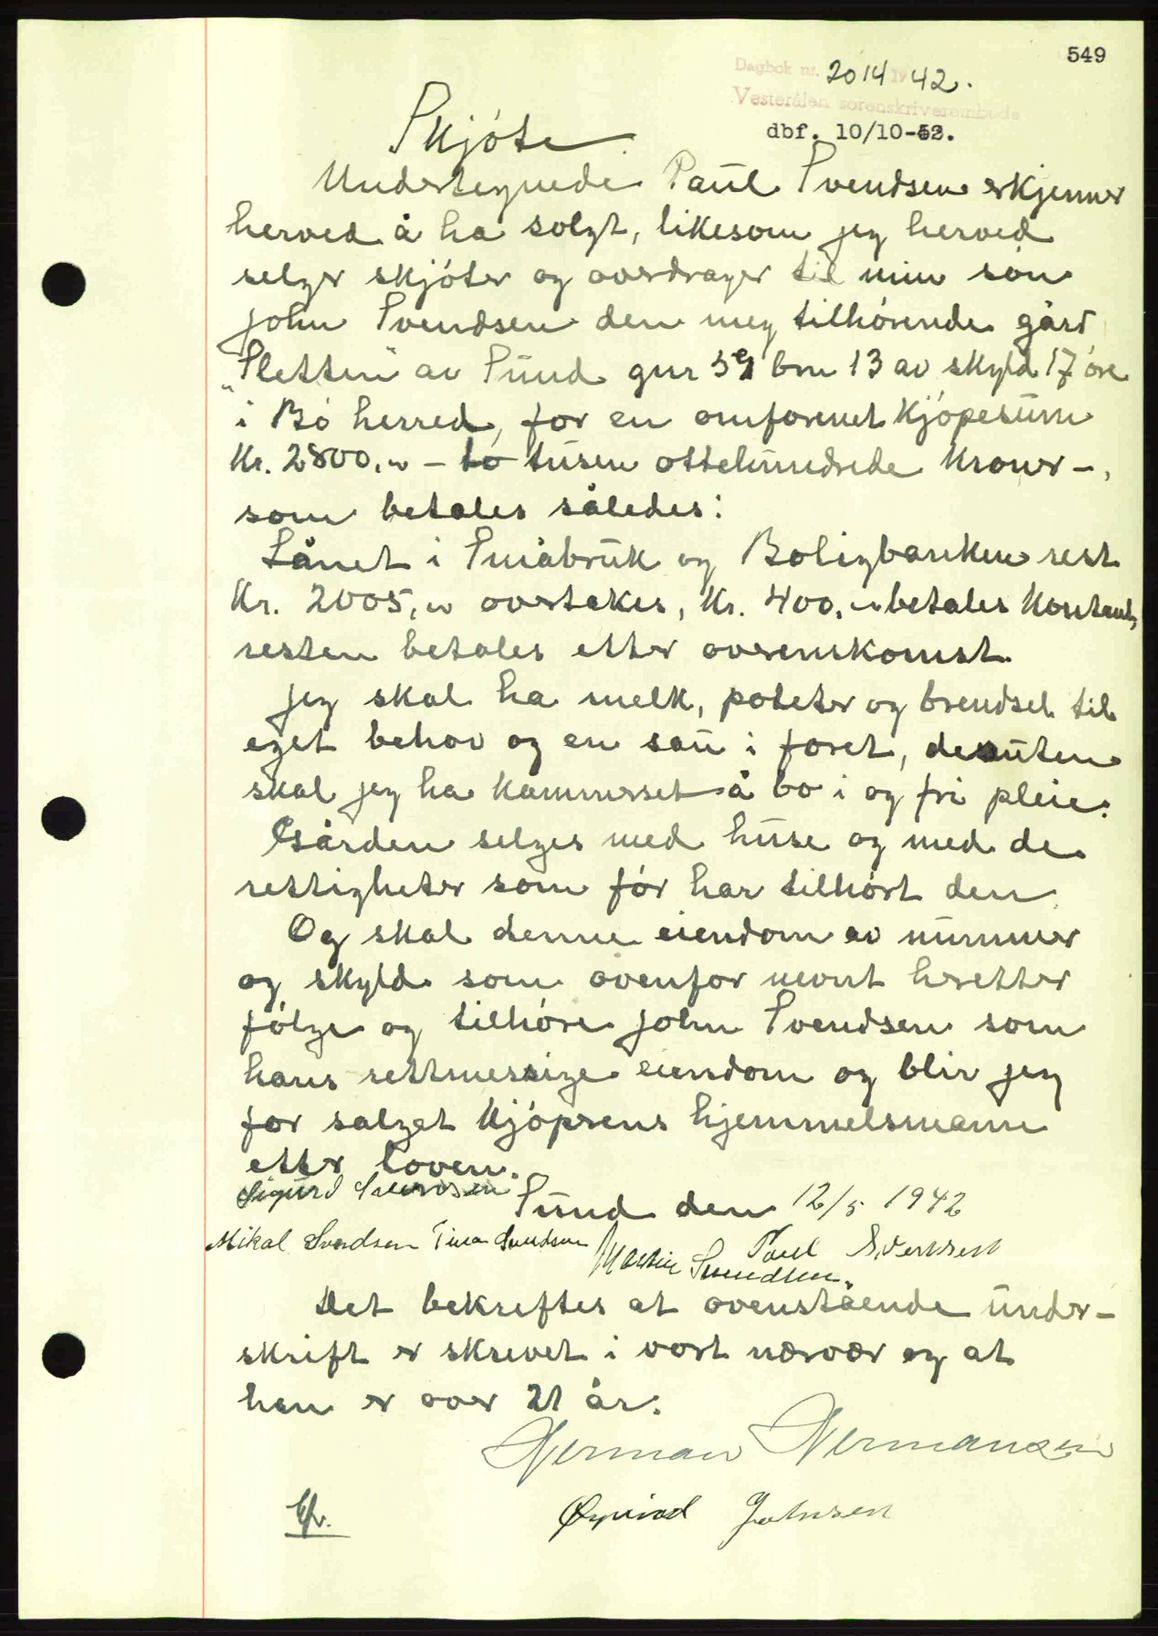 549
Dagbok nr. 2014 19 42.
Vesterålen sorenskriverembede
dbf. 10/10-52.
Skjóte
Undertegnede Paul Svendsen erkjenner
herved å ha solgt, likesom jeg herved
selger skjóter og overdrager til min són
John Svendsen den meg tilhórende gård
"Sletten" av Sund gnr 59 bnr 13 av skyld 17 óre
i Bó herred, for en omforenet kjópesum
Kr. 2800,- - to tusen ottehundrede kroner -,
som betales således:
Lånet i Småbruk og Boligbanken rest
Kr. 2005,- overtakes, Kr. 400,- betales kontant,
resten betales etter overenskomst.
Jeg skal ha melk, poteter og brendsel til
eget behov og en sau i foret, desuten
skal jeg ha kammerset å bo i og fri pleie.
Gården selges med huse og med de
rettigheter som fór har tilhórt den.
Og skal denne eiendom av nummer
og skyld som ovenfor nevnt heretter
fólge og tilhóre John Svendsen som
hans rettmessige eiendom og blir jeg
for salget kjóperens hjemmelsmann
etter loven.
Sigurd Svendsen
Sund den 12/5 1942
Mikal Svendsen Tina Svendsen
Paul Svendsen
Martin Svendsen.
Det bekreftes at ovenstående under-
skrift er skrevet i vort nærvær og at
han er over 21 år.
Herman Hermansen
Øyvind Johnsen